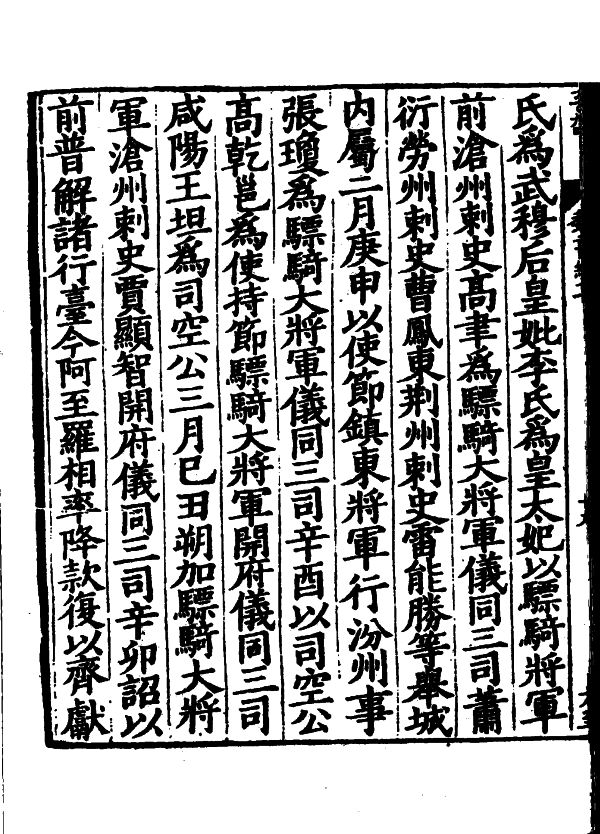 氏爲武穆后皇妣李氏爲皇太妃以驃騎將軍
前滄州刺史高聿爲驃騎大將軍儀同三司蕭
衍勞州刺史曹鳳東荆州刺史雷能勝等舉城
内屬二月庚申以使節鎮東將軍行汾州事
張瓊爲驃騎大將軍儀同三司辛酉以司空公
高乾邕爲使持節驃騎大將軍開府儀同三司
咸陽王坦爲司空公三月己丑朔加驃騎大將
軍滄州刺史賈顯智開府儀同三司辛卯詔以
前普解諸行臺今阿至羅相率降款復以齊獻